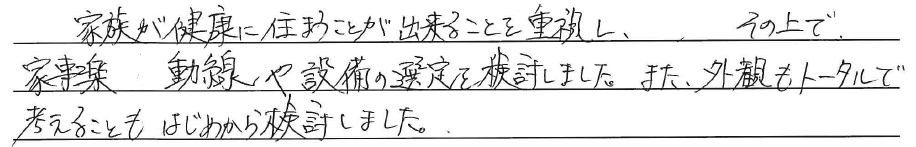 家族が健康に住まうことが出来ることを重視し、 その上で、
家事楽 動線や設備の選定を検討しました。また、外観もトータルで
考えることも はじめから検討しました。